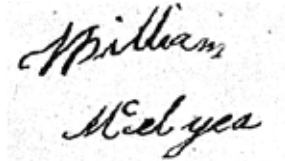 William
McElyea